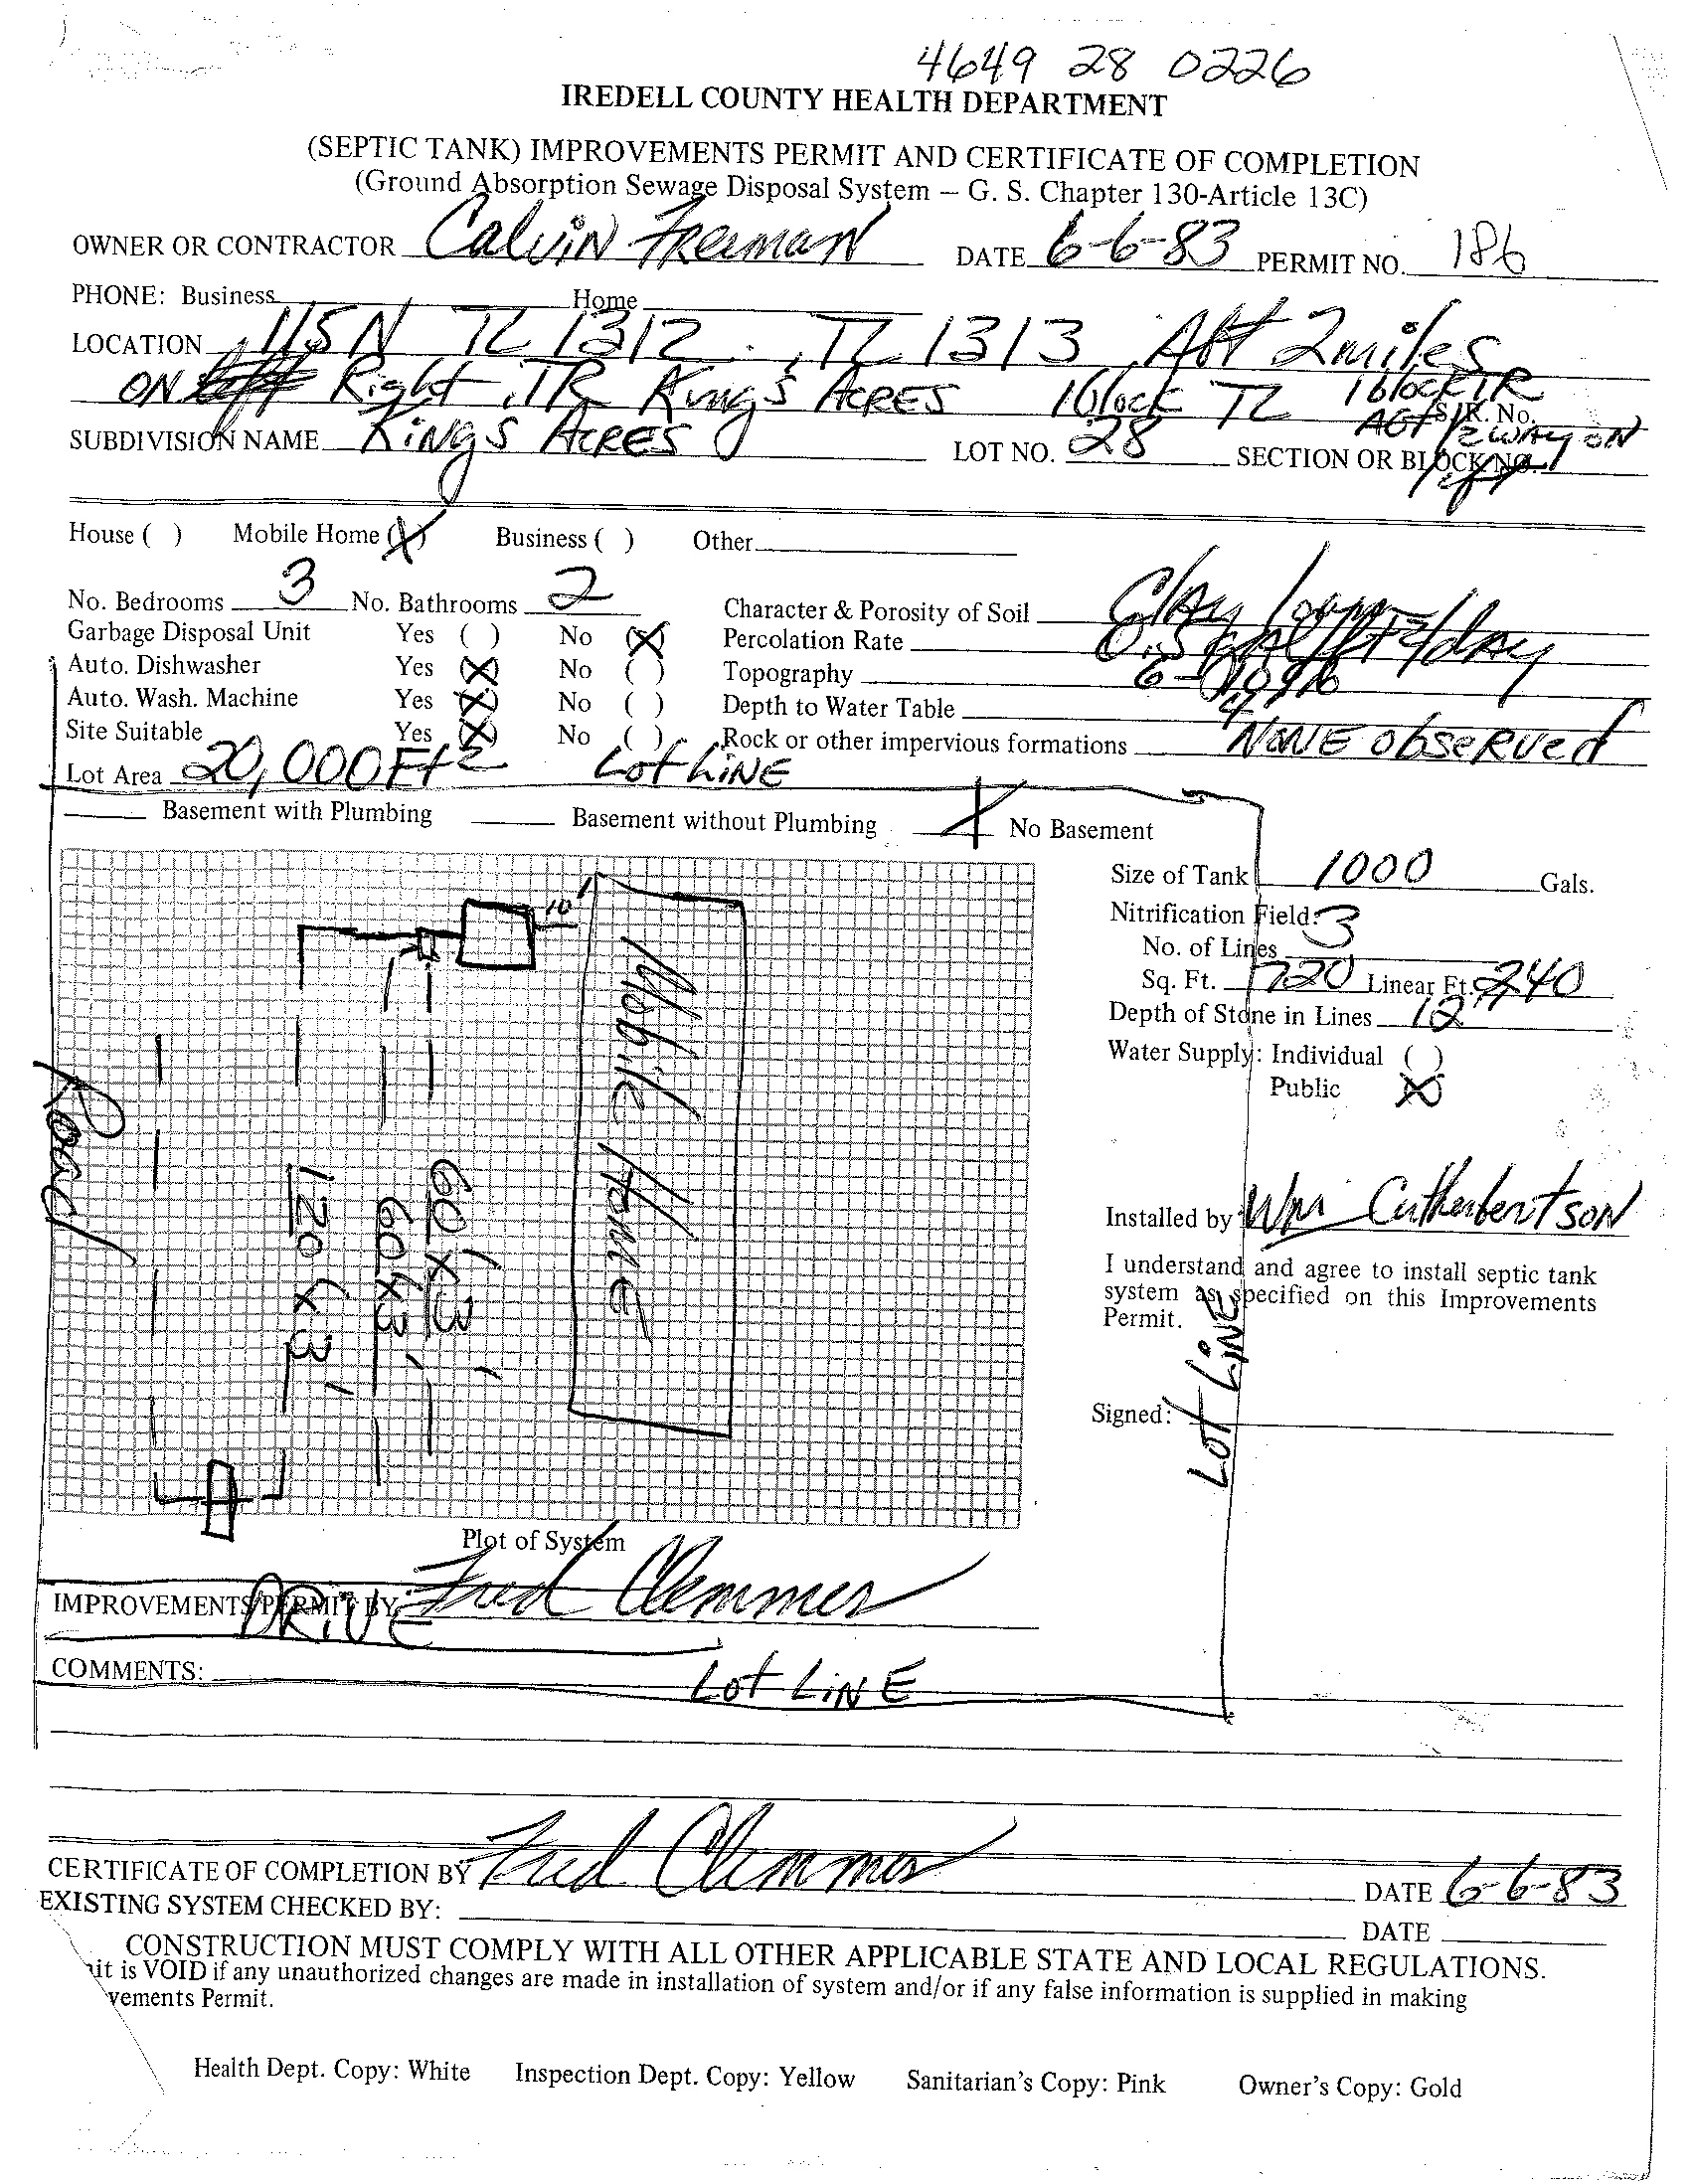 4649 28 0226
IREDELL COUNTY HEALTH DEPARTMENT
(SEPTIC TANK) IMPROVEMENTS PERMIT AND CERTIFICATE OF COMPLETION
(Ground Absorption Sewage Disposal System – G. S. Chapter 130-Article 13C)
OWNER OR CONTRACTOR Calvin Freeman DATE 6-6-83 PERMIT NO. 186
PHONE: Business Home
LOCATION 115 N TL 1312 TL 1313 2 miles
ON Right TR Kings ACRES 1 block TL 1 block TR
S. R. No.
SUBDIVISION NAME KiNgS ACRES LOT NO. 28 SECTION OR BLOCK NO.
1/2 WAY ON
House ( ) Mobile Home (X) Business ( ) Other
No. Bedrooms 3 No. Bathrooms 2 Character & Porosity of Soil Clay loam
Garbage Disposal Unit Yes ( ) No (X) Percolation Rate 0.5 gal/ft2/day
Auto. Dishwasher Yes (X) No ( ) Topography 6-10%
Auto. Wash. Machine Yes (X) No ( ) Depth to Water Table 4'
Site Suitable Yes (X) No ( ) Rock or other impervious formations NONE observed
Lot Area 20,000 Ft2 Lot LiNE
Basement with Plumbing Basement without Plumbing X No Basement
Size of Tank 1000 Gals.
Nitrification Field:
No. of Lines 3
Sq. Ft. 720 Linear Ft. 240
Depth of Stone in Lines 12"
Water Supply: Individual ( )
Public (X)
10'
Mobile Home
60'x3'
60'x3'
120'x3'
Road
Installed by Wm Cuthbertson
I understand and agree to install septic tank
system as specified on this Improvements
Permit.
Lot LiNE
Signed:
Plot of System
IMPROVEMENTS PERMIT BY Fred Clemmer
DRIVE
COMMENTS:
Lot LiNE
CERTIFICATE OF COMPLETION BY Fred Clemmer DATE 6-6-83
EXISTING SYSTEM CHECKED BY: DATE
CONSTRUCTION MUST COMPLY WITH ALL OTHER APPLICABLE STATE AND LOCAL REGULATIONS.
it is VOID if any unauthorized changes are made in installation of system and/or if any false information is supplied in making
vements Permit.
Health Dept. Copy: White Inspection Dept. Copy: Yellow Sanitarian's Copy: Pink Owner's Copy: Gold